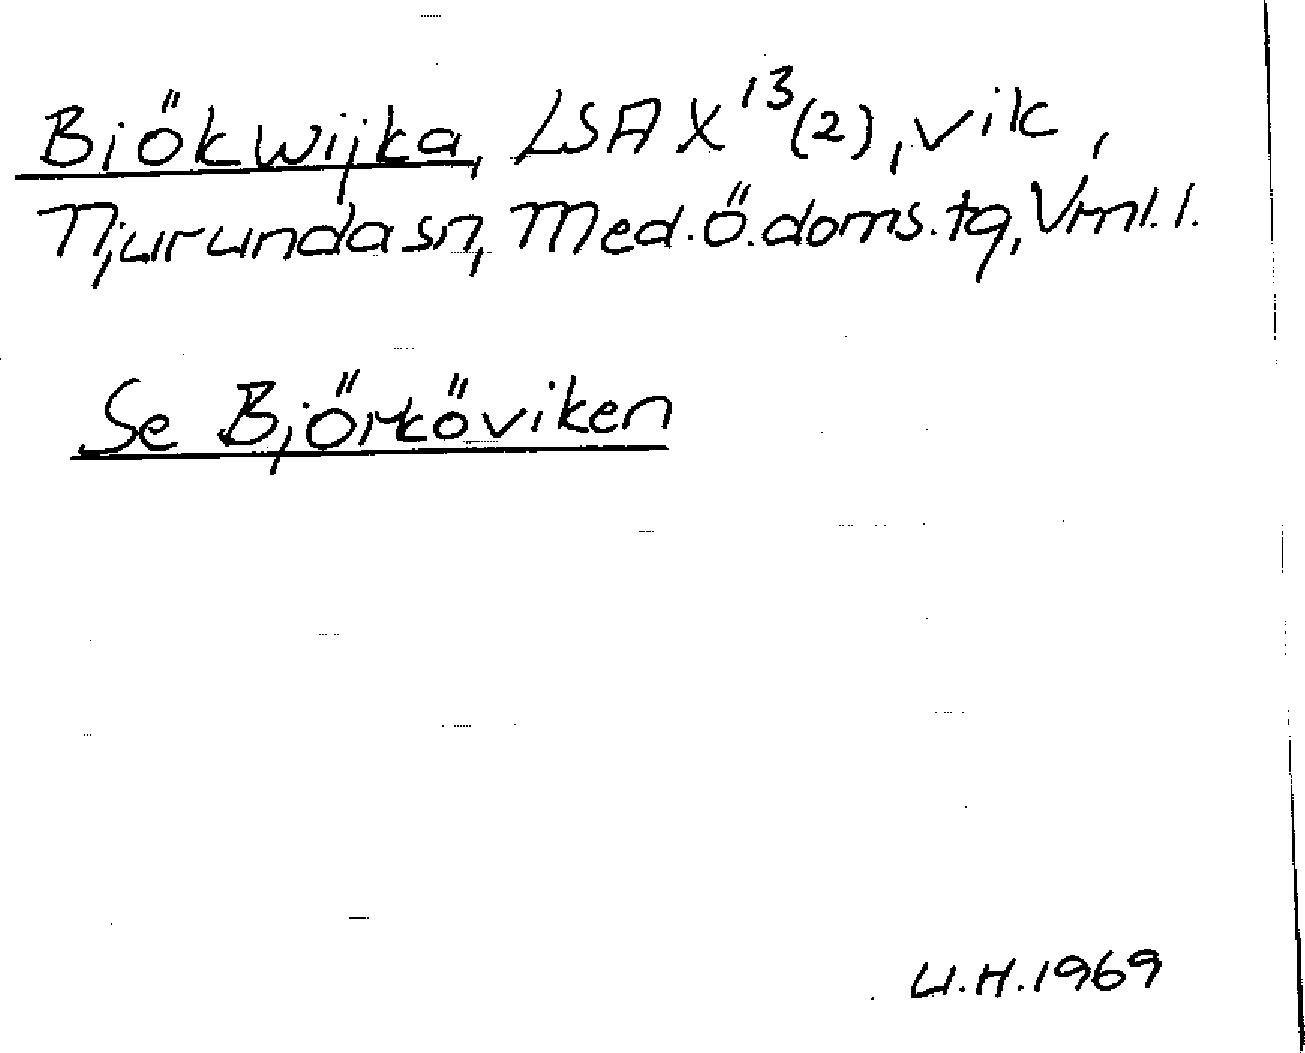 Biökwijka, LSA X¹³(2), vik,
Njurunda sn, Med. Ö. doms. tg, Vml. l.
Se Björköviken
U.H. 1969